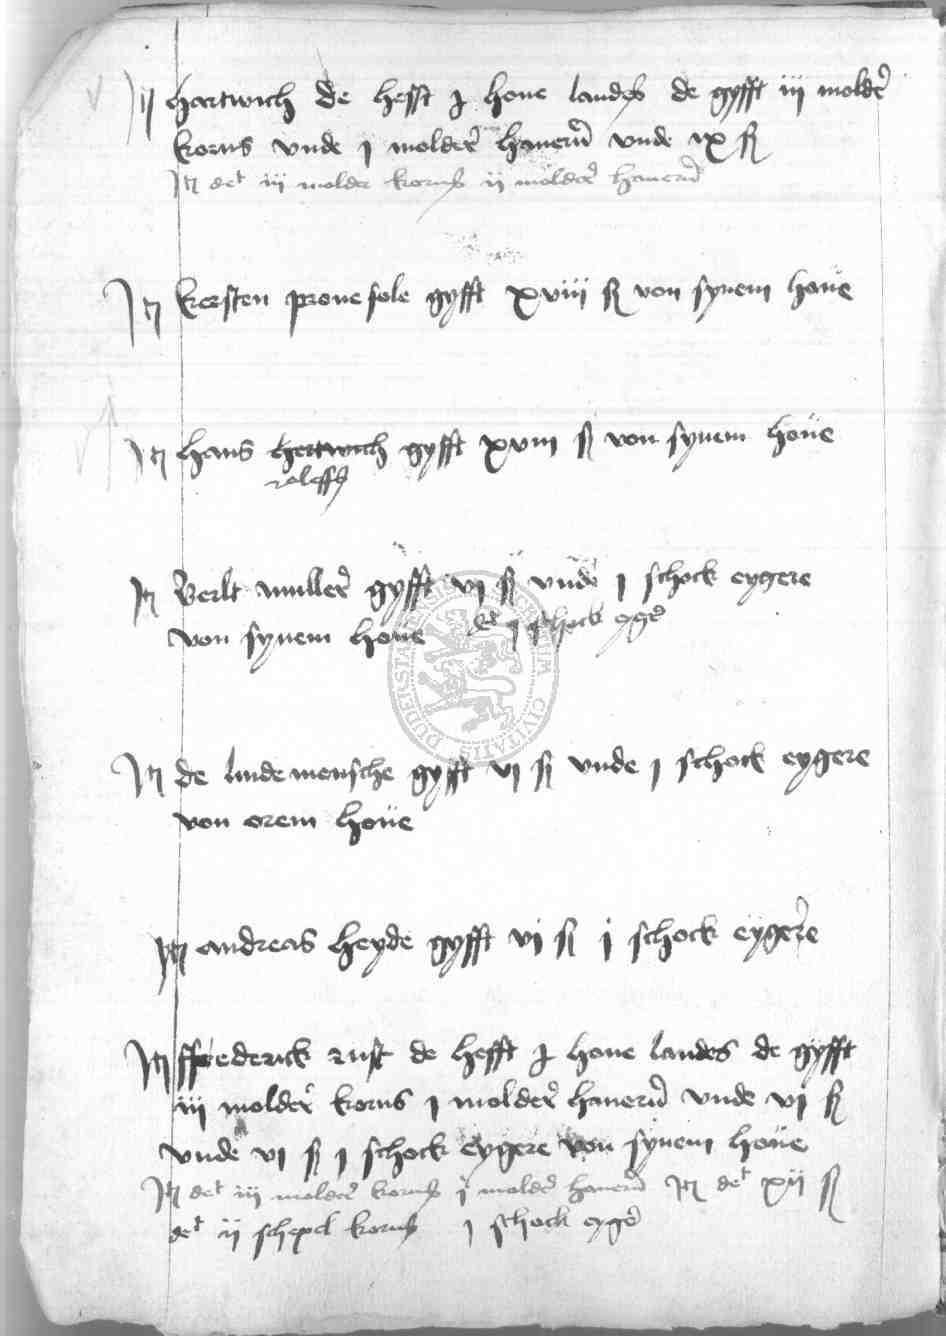 It hartwich de hefft j houe landes de gyfft iij molder
korns vnde j molder hauern vnde ix ß
It det iij molder korns ij molder hauern
It kersten prouesole gyfft xviij ß von synem houe
It hans hertwich gyfft xviij ß von synem houe
roleffs
It Berlt muller gyfft vj ß vnde j schock eygere
von synem houe det j schock eger
It de lindemensche gyfft vj ß vnde j schock eygere
von orem houe
It andreas heyde gyfft vj ß j schock eygere
It ffrederick rust de hefft j houe landes de gyfft
iij molder korns j molder hauern vnde vj ß
vnde vj ß j schock eygere von synem houe
It det iij molder korns j molder hauern It det xij ß
det ij schepel korns j schock eyger
DUDERSTAT CIVITATIS